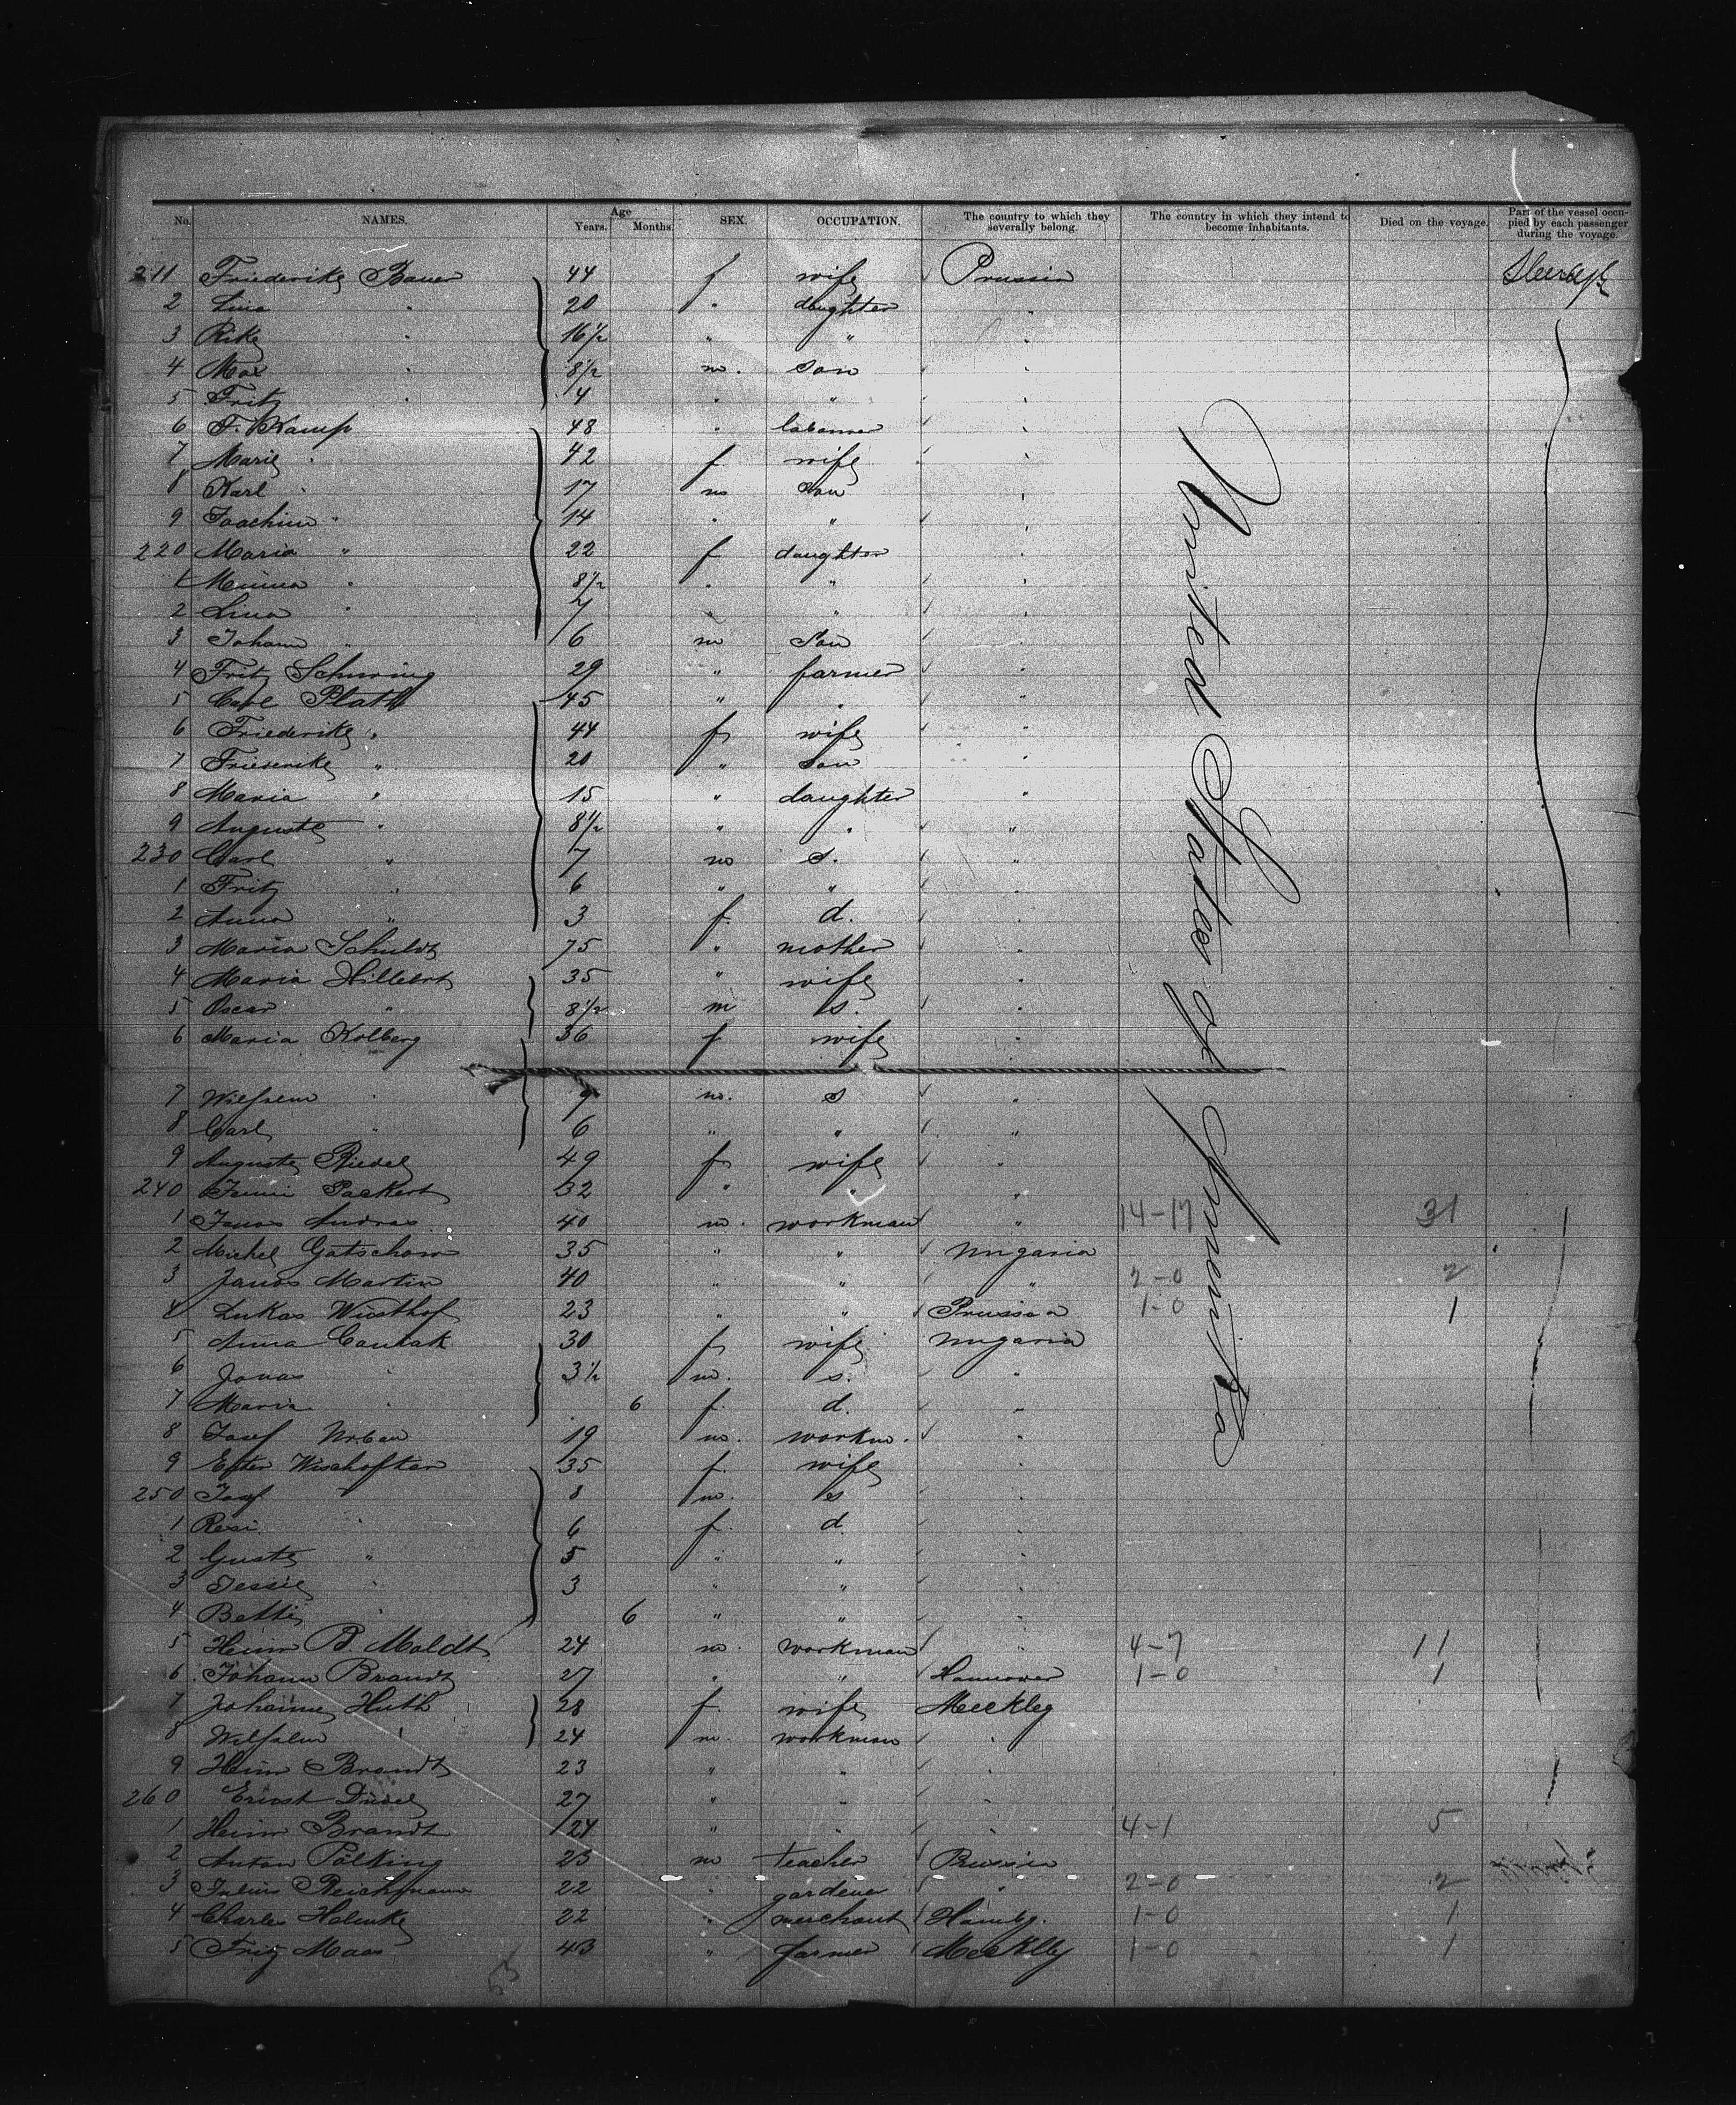 No. NAMES. Age Years. Months. SEX. OCCUPATION. The country to which they severally belong. The country in which they intend to become inhabitants. Died on the voyage. Part of the vessel occupied by each passenger during the voyage.
211 Friederike Bauer 44 f wife Prussia
2 Lina " 20 " daughter "
3 Rike " 16 1/2 " " "
4 Max " 8 1/2 m. son "
5 Fritz " 4 " " "
6 F. Kamp 48 " labourer "
7 Marie " 42 f wife "
8 Karl " 17 m son "
9 Joachim " 14 " " "
220 Maria " 22 f daughter "
1 Minna " 8 1/2 " " "
2 Lina " 7 " " "
3 Johann " 6 m Son "
4 Fritz Schwring 29 " farmer "
5 Carl Plath 45 " " "
6 Friederike " 44 f wife "
7 Friederike " 20 " Son "
8 Maria " 15 " daughter "
9 Auguste " 8 1/2 " " "
230 Carl " 7 m s. "
1 Fritz " 6 " " "
2 Anna " 3 f d. "
3 Maria Schuldt 75 " mother "
4 Maria Hillebrt 35 " wife "
5 Oscar " 8 1/2 m s. "
6 Maria Kolberg 36 f wife "
7 Wilhelm " 9 m. s "
8 Carl " 6 " " "
9 Auguste Riedel 49 f wife "
240 Packert 32 " " "
1 Janos Andras 40 m. workman " 14-17 31
2 Michel Gatschow 35 " " Ungaria
3 Janos Martin 40 " " " 2-0 2
4 Lukas Wüsthof 23 " " Prussia 1-0 1
5 Anna Cauhak 30 f wife Ungaria
6 Jonas " 3 1/2 m. s. "
7 Maria " 6 f. d. "
8 Josef Urban 19 m. workm. "
9 Ester Wischofker 35 f. wife "
250 Josef " 8 m. s "
1 Resi " 6 f. d. "
2 Guste " 5 " " "
3 Jessie " 3 " " "
4 Betti " 6 " " "
5 Heinr B. Moldt 24 m. workman " 4-7 11
6 Johann Brandt 27 " " Hannover 1-0 1
7 Johanne Huth 28 f. wife Mecklbg
8 Wilhelm " 24 m. workman "
9 Heinr Brandt 23 " " "
260 Ernst Düvel 27 " " "
1 Heinr Brandt 24 " " " 4-1 5
2 Anton Pölking 23 m teacher Prussia
3 Julius Reichmann 22 " gardener " 2-0 2
4 Charles Helmke 22 " merchant Hambg. 1-0 1
5 Fritz Maas 43 " farmer Mecklbg 1-0 1
United States of America
55